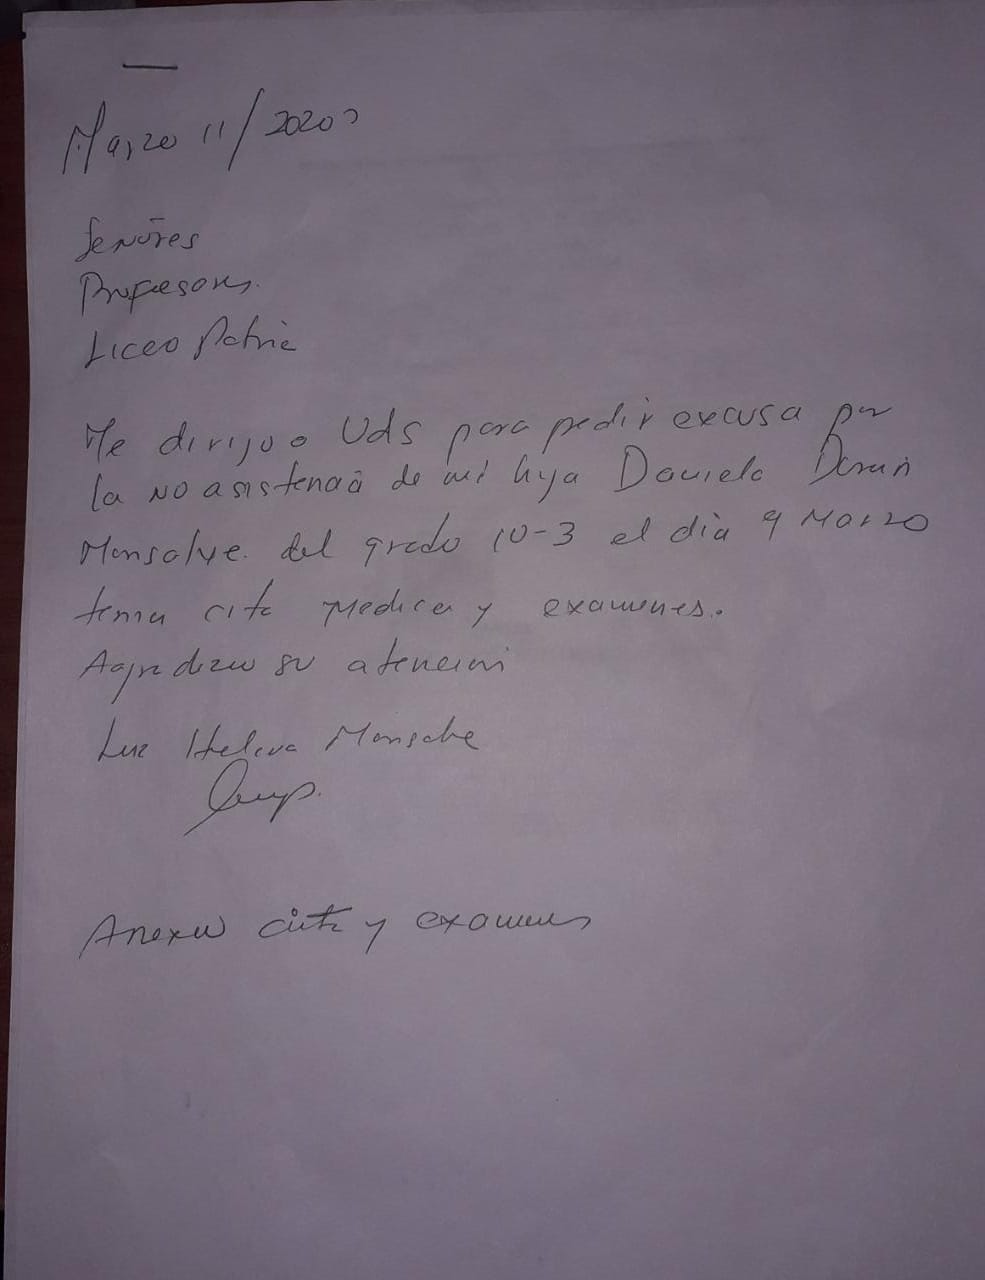 Marzo 11/2020
Señores
Profesores.
Liceo Patria
Me dirijo a Uds para pedir excusa por
la no asistencia de mi hija Daniela Duran
Monsalve. del grado 10-3 el dia 9 Marzo
tenia cita Medica y examenes.
Agradezco su atencion
Luz Helena Monsalve
Anexo cita y examenes